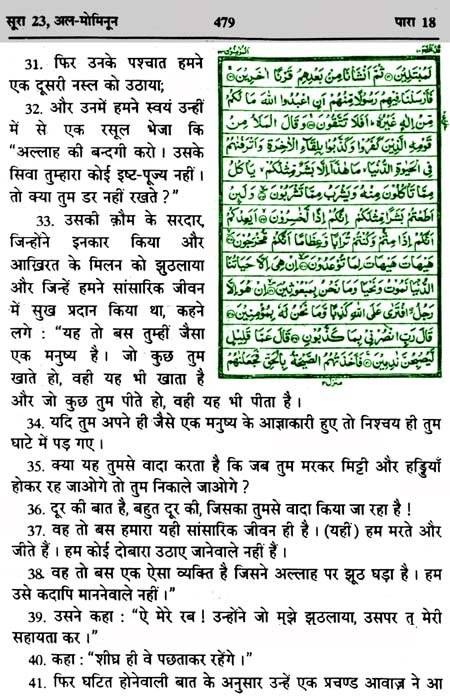 सूरा 23, अल-मोमिनून 479 पारा 18
31. फिर उनके पश्चात हमने
एक दूसरी नस्ल को उठाया;
32. और उनमें हमने स्वयं उन्हीं
में से एक रसूल भेजा कि
“अल्लाह की बन्दगी करो। उसके
सिवा तुम्हारा कोई इष्ट-पूज्य नहीं।
तो क्या तुम डर नहीं रखते?”
33. उसकी क़ौम के सरदार,
जिन्होंने इनकार किया और
आख़िरत के मिलन को झुठलाया
और जिन्हें हमने सांसारिक जीवन
में सुख प्रदान किया था, कहने
लगे : “यह तो बस तुम्हीं जैसा
एक मनुष्य है। जो कुछ तुम
खाते हो, वही यह भी खाता है
और जो कुछ तुम पीते हो, वही यह भी पीता है।
34. यदि तुम अपने ही जैसे एक मनुष्य के आज्ञाकारी हुए तो निश्चय ही तुम
घाटे में पड़ गए।
35. क्या यह तुमसे वादा करता है कि जब तुम मरकर मिट्टी और हड्डियाँ
होकर रह जाओगे तो तुम निकाले जाओगे?
36. दूर की बात है, बहुत दूर की, जिसका तुमसे वादा किया जा रहा है!
37. वह तो बस हमारा यही सांसारिक जीवन ही है। (यहीं) हम मरते और
जीते हैं। हम कोई दोबारा उठाए जानेवाले नहीं हैं।
38. वह तो बस एक ऐसा व्यक्ति है जिसने अल्लाह पर झूठ घड़ा है। हम
उसे कदापि माननेवाले नहीं।”
39. उसने कहा : “ऐ मेरे रब! उन्होंने जो मुझे झुठलाया, उसपर तू मेरी
सहायता कर।”
40. कहा : “शीघ्र ही वे पछताकर रहेंगे।”
41. फिर घटित होनेवाली बात के अनुसार उन्हें एक प्रचण्ड आवाज़ ने आ
لَمُبْتَلِينَ ثُمَّ أَنْشَأْنَا مِنْ بَعْدِهِمْ قَرْنًا آخَرِينَ
فَأَرْسَلْنَا فِيهِمْ رَسُولًا مِنْهُمْ أَنِ اعْبُدُوا اللَّهَ مَا لَكُمْ
مِنْ إِلَهٍ غَيْرُهُ أَفَلَا تَتَّقُونَ وَقَالَ الْمَلَأُ مِنْ
قَوْمِهِ الَّذِينَ كَفَرُوا وَكَذَّبُوا بِلِقَاءِ الْآخِرَةِ وَأَتْرَفْنَاهُمْ
فِي الْحَيَاةِ الدُّنْيَا مَا هَذَا إِلَّا بَشَرٌ مِثْلُكُمْ يَأْكُلُ
مِمَّا تَأْكُلُونَ مِنْهُ وَيَشْرَبُ مِمَّا تَشْرَبُونَ وَلَئِنْ
أَطَعْتُمْ بَشَرًا مِثْلَكُمْ إِنَّكُمْ إِذًا لَخَاسِرُونَ أَيَعِدُكُمْ
أَنَّكُمْ إِذَا مِتُّمْ وَكُنْتُمْ تُرَابًا وَعِظَامًا أَنَّكُمْ مُخْرَجُونَ
هَيْهَاتَ هَيْهَاتَ لِمَا تُوعَدُونَ إِنْ هِيَ إِلَّا حَيَاتُنَا
الدُّنْيَا نَمُوتُ وَنَحْيَا وَمَا نَحْنُ بِمَبْعُوثِينَ إِنْ هُوَ إِلَّا
رَجُلٌ افْتَرَى عَلَى اللَّهِ كَذِبًا وَمَا نَحْنُ لَهُ بِمُؤْمِنِينَ
قَالَ رَبِّ انْصُرْنِي بِمَا كَذَّبُونِ قَالَ عَمَّا قَلِيلٍ
لَيُصْبِحُنَّ نَادِمِينَ فَأَخَذَتْهُمُ الصَّيْحَةُ بِالْحَقِّ فَجَعَلْنَاهُمْ